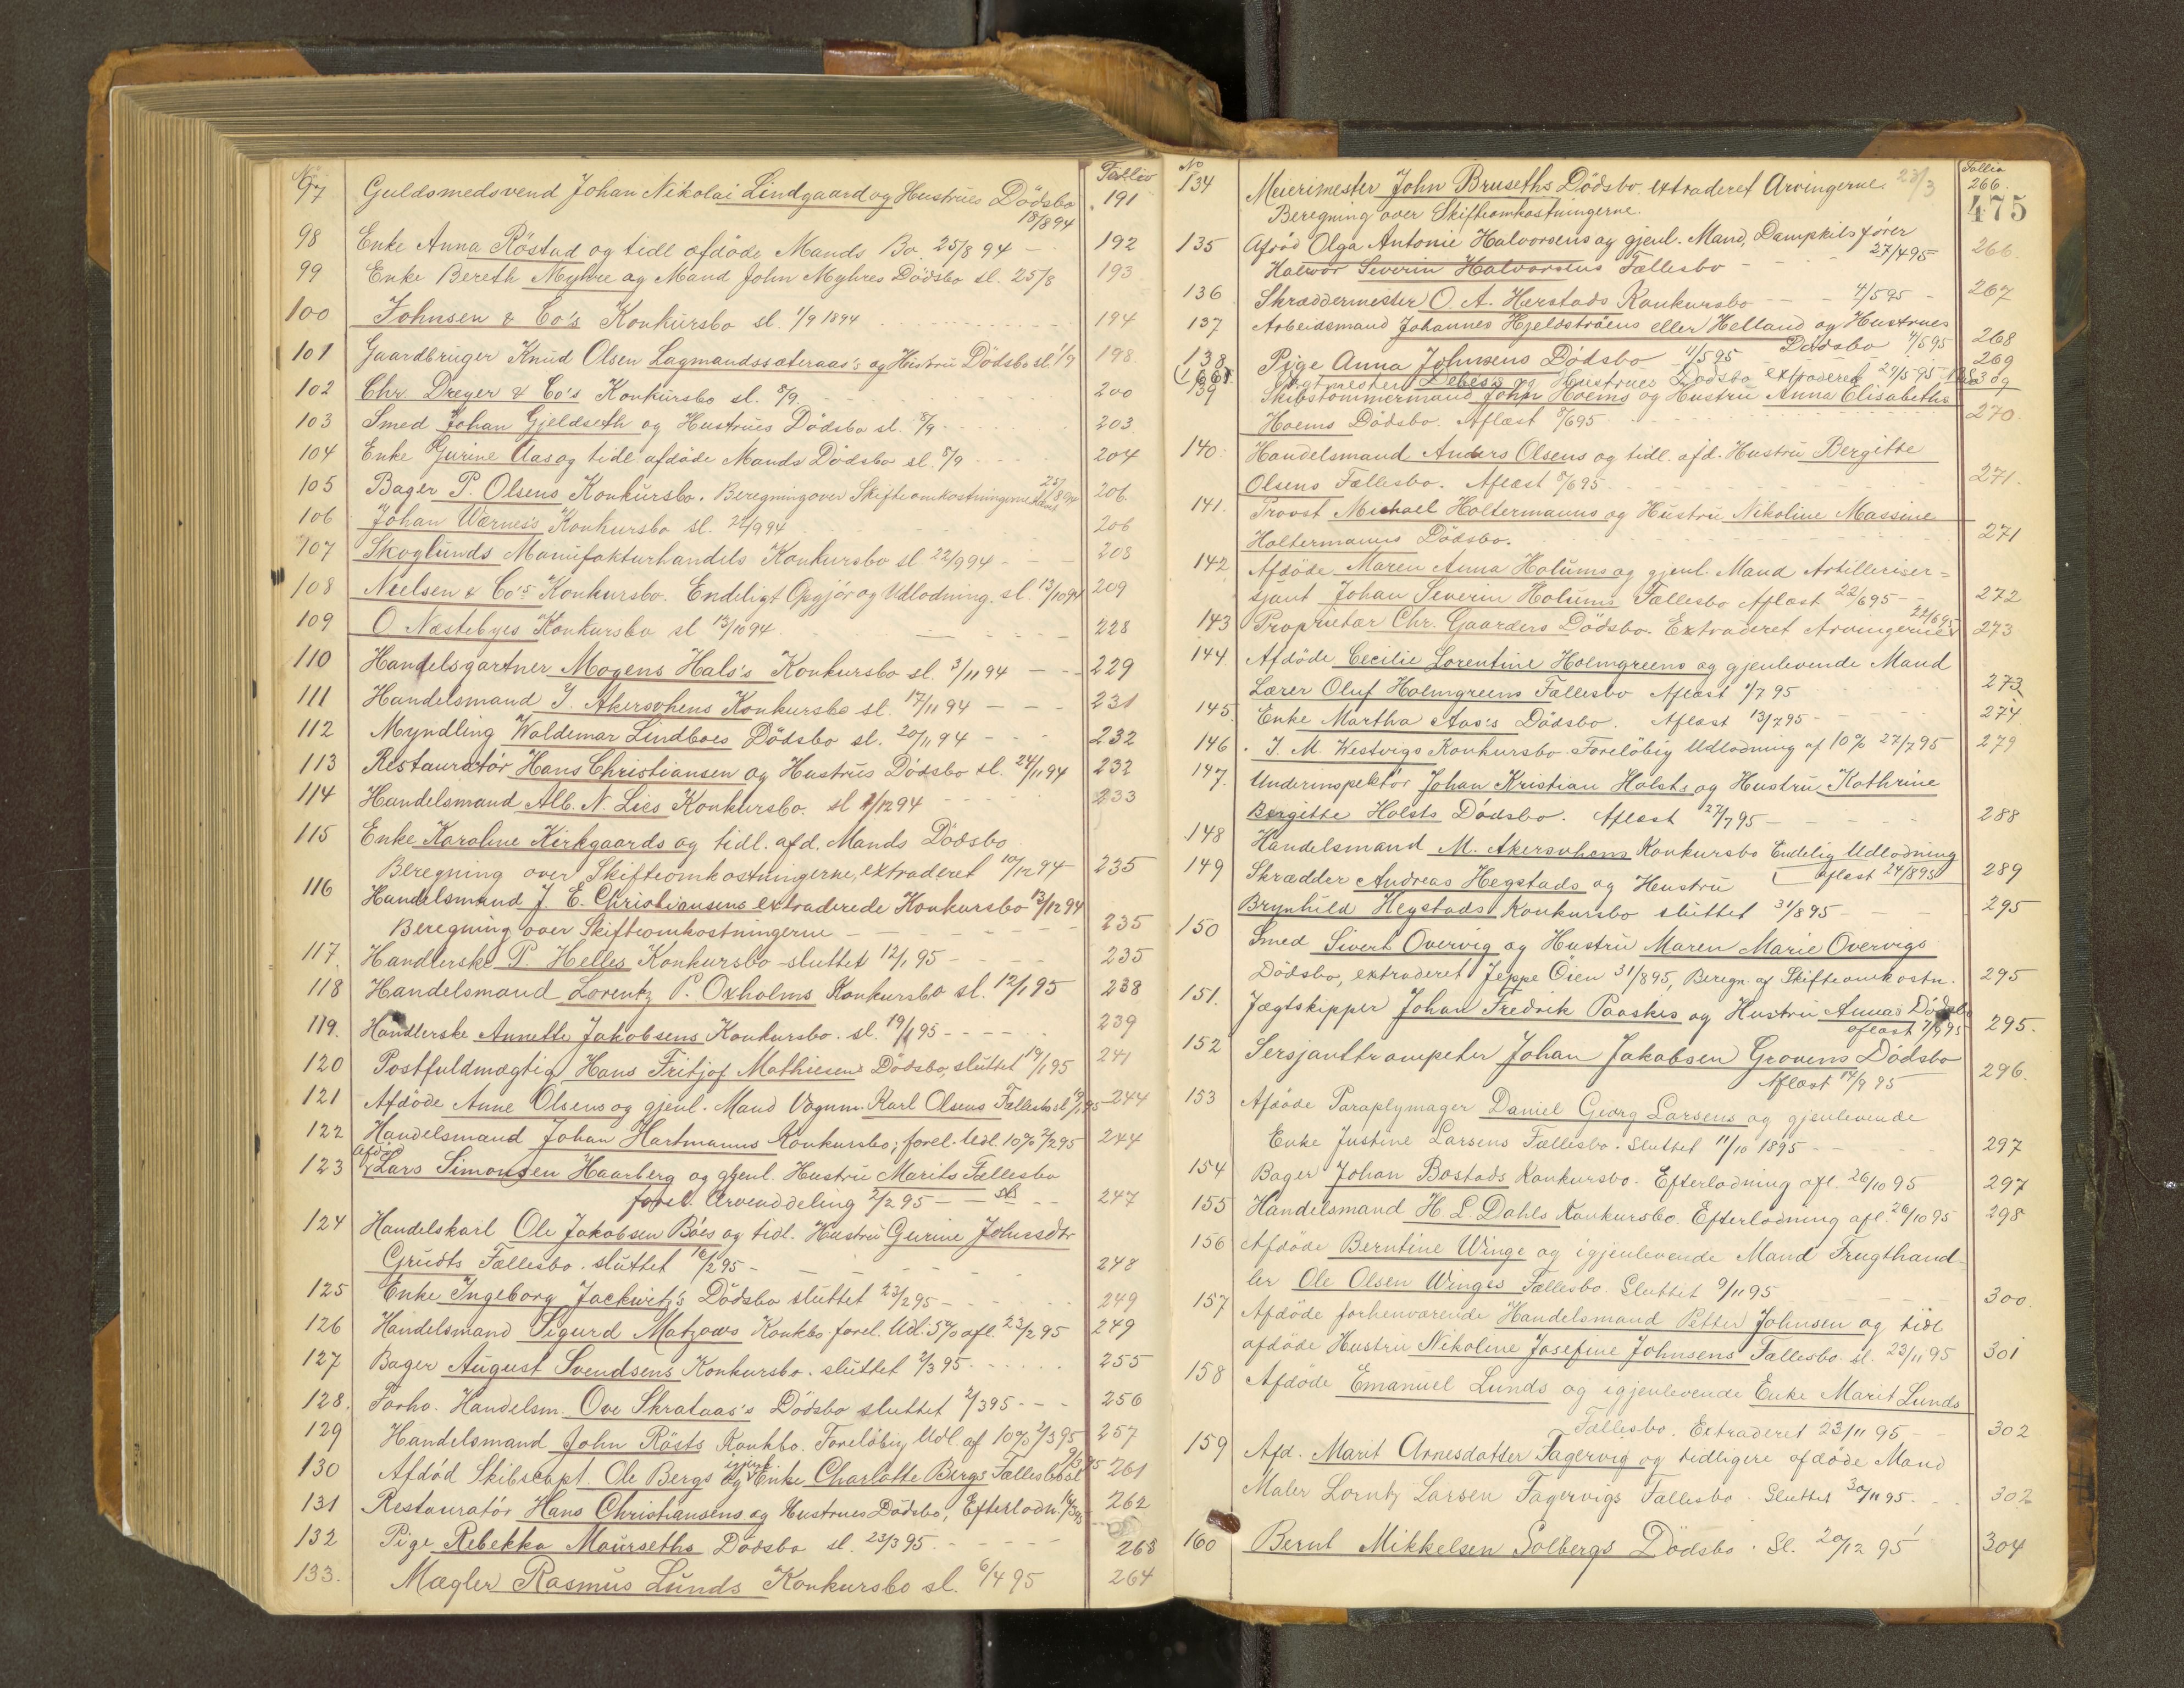 No Follio
97 Guldsmedsvend Johan Nikolai Lindgaard og Hustrues Dödsbo 191
18/8 94
98 Enke Anna Röstad og tidl afdöde Mands Bo. 25/8 94 - 192
99 Enke Bereth Myhre og Mand John Myhres Dödsbo sl. 25/8 193
100 Johnsen & Co's Konkursbo sl. 1/9 1894 194
101 Gaardbruger Knud Olsen Lagmandssæteraas's og Hustru Dödsbo sl. 1/9 198
102 Chr. Dreyer & Co's Konkursbo sl. 8/9 200
103 Smed Johan Gjeldseth og Hustrues Dödsbo sl. 8/9 203
104 Enke Gurine Aas og tidl. afdöde Mands Dödsbo sl. 8/9 204
105 Bager P. Olsens Konkursbo. Beregning over Skifteomkostningerne 206
106 Johan Wærnes's Konkursbo sl. 22/9 94 206
107 Skoglunds Manufakturhandels Konkursbo sl 22/9 94 - 208
108 Nielsen & Co's Konkursbo. Endeligt Opgjör og Udlodning. sl. 13/10 94 209
109 O. Næstebyes Konkursbo sl 13/10 94 228
110 Handelsgartner Mogens Hals's Konkursbo sl. 3/11 94 - - 229
111 Handelsmand J. Akersvhens Konkursbo sl. 17/11 94 - - - 231
112 Myndling Waldemar Lindboes Dödsbo sl. 20/11 94 - - - 232
113 Restauratör Hans Christiansen og Hustrus Dödsbo sl. 24/11 94 232
114 Handelsmand Alb. N. Lies Konkursbo. sl 1/12 94 - - - 233
115 Enke Karoline Kirkgaards og tidl. afd. Mands Dödsbo
Beregning over Skifteomkostningerne, extraderet 10/12 94 235
116 Handelsmand J. E. Christiansens extraderede Konkursbo 13/12 94
Beregning over Skifteomkostningerne - - - 235
117. Handlerske P. Helles Konkursbo - sluttet 12/1 95 - - 235
118 Handelsmand Lorentz P. Oxholms Konkursbo sl. 12/1 95 238
119. Handlerske Annette Jakobsens Konkursbo. sl. 19/1 95 - - - - 239
120 Postfuldmægtig Hans Fritjof Mathiesens Dödsbo, sluttet 19/1 95 241
121 Afdöde Anne Olsens og gjenl. Mand Vognm. Karl Olsens Fællesbo sl 19/1 95 244
122 Handelsmand Johan Hartmanns Konkursbo, forel. Udl. 10% 2/2 95 244
123 Afd. Lars Simonsen Haarberg og gjenl. Hustru Marits Fællesbo
forel. Arveuddeling 2/2 95 - - sl. - - 247
124 Handelskarl Ole Jakobsen Böes og tidl. Hustru Gurine Johnsdtr
Grudts Fællesbo. sluttet 16/2 95 - 248
125 Enke Ingeborg Jackwitz's Dödsbo sluttet 23/2 95 - 249
126 Handelsmand Sigurd Matzows Konkbo. forel. Udl. 5% afl. 23/2 95 249
127 Bager August Svendsens Konkursbo. sluttet 2/3 95 255
128. Forhv. Handelsm. Ove Skrataas's Dödsbo sluttet 2/3 95 - - - 256
129 Handelsmand John Rösts Konkbo. Foreløbig Udl. af 10% 2/3 95 257
130 Afdöd Skibscapt. Ole Bergs og igjenl. Enke Charlotte Bergs Fællesbo sl 9/3 95 261
131 Restauratör Hans Christiansens og Hustrues Dödsbo, Efterlodn. 16/3 95 262
132 Pige Rebekka Maurseths Dödsbo sl. 23/3 95 - - - - 263
133. Mægler Rasmus Lunds Konkursbo sl. 6/4 95 264
No Follio
134 Meierimester John Bruseths Dödsbo extraderet Arvingerne. 23/3 266.
Beregning over Skifteomkostningerne. 475
135 Afdöd Olga Antonie Halvorsens og gjenl. Mand, Dampskibsförer
Halvor Severin Halvorsens Fællesbo 27/4 95 266.
136 Skræddermester O. A. Hærstads Konkursbo - - - 4/5 95 - 267
137 Arbeidsmand Johannes Hjeldströens eller Helland og Hustrues
Dødsbo 4/5 95 268
138 Pige Anna Johnsens Dödsbo 4/5 95 269
Debes's og Hustrues Dödsbo extraderet
139 Skibstömmermand John Hoems og Hustru Anna Elisabeths
Hoems Dödsbo. Aflæst 8/6 95 270.
140. Handelsmand Anders Olsens og tidl. afd. Hustru Bergitte
Olsens Fællesbo. Aflæst 8/6 95 271
141. Provst Michael Holtermanns og Hustru Nikoline Massine
Holtermanns Dödsbo. 271
142 Afdöde Maren Anna Holums og gjenl. Mand Artilleriser=
sjant Johan Severin Holums Fællesbo Aflæst 22/6 95 - - 272
143 Proprietær Chr. Gaarders Dödsbo. Extraderet Arvingerne 22/6 95 273
144. Afdöde Cecilie Lorentine Holmgreens og gjenlevende Mand
Lærer Oluf Holmgreens Fællesbo Aflæst 1/7 95 273
145. Enke Martha Aas's Dödsbo. Aflæst 13/7 95 - 274
146. J. M. Westvigs Konkursbo. Foreløbig Udlodning af 10% 27/7 95 279
147. Underinspektör Johan Kristian Holsts og Hustru Kathrine
Bergitte Holsts Dödsbo. Aflæst 27/7 95 - 288
148 Handelsmand M. Akersvhens Konkursbo Endelig Udlodning
aflæst 24/8 95 289
149 Skrædder Andreas Hegstads og Hustru
Brynhild Hegstads Konkursbo sluttet 31/8 95 - 295
150 Smed Sivert Overvig og Hustru Maren Marie Overvigs
Dödsbo, extraderet Jeppe Öien 31/8 95, Beregn. af Skifteomkostn. 295
151. Jægtskipper Johan Fredrik Paaskes og Hustru Annas Dödsbo
aflæst 7/9 95 295.
152 Sersjanttrompeter Johan Jakobsen Grovens Dödsbo
Aflæst 14/9 95 296.
153 Afdöde Paraplymager Daniel Georg Larsens og gjenlevende
Enke Justine Larsens Fællesbo. Sluttet 11/10 1895 - - 297
154 Bager Johan Bostads Konkursbo. Efterlodning afl. 26/10 95 297
155 Handelsmand H. L. Dahls Konkursbo. Efterlodning afl. 26/10 95 298
156 Afdöde Berntine Winge og igjenlevende Mand Frugthand-
ler Ole Olsen Winges Fællesbo. Sluttet 9/11 95 300.
157 Afdöde forhenværende Handelsmand Petter Johnsen og tidl
afdöde Hustru Nikoline Josefine Johnsens Fællesbo sl. 23/11 95 301
158 Afdöde Emanuel Lunds og igjenlevende Enke Marit Lunds
Fællesbo. Extraderet 23/11 95 - - 302
159 Afd. Marit Arnesdatter Fagervig og tidligere afdöde Mand
Maler Lorntz Larsen Fagervigs Fællesbo. Sluttet 30/11 95. 302
160 Bernt Mikkelsen Solbergs Dödsbo. Sl. 20/12 95 304